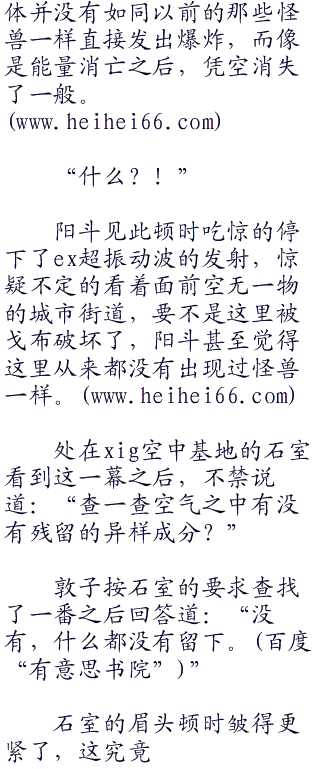 体并没有如同以前的那些怪
兽一样直接发出爆炸，而像
是能量消亡之后，凭空消失
了一般。
(www.heihei66.com)
“什么？！”
阳斗见此顿时吃惊的停
下了ex超振动波的发射，惊
疑不定的看着面前空无一物
的城市街道，要不是这里被
戈布破坏了，阳斗甚至觉得
这里从来都没有出现过怪兽
一样。(www.heihei66.com)
处在xig空中基地的石室
看到这一幕之后，不禁说
道：“查一查空气之中有没
有残留的异样成分？”
敦子按石室的要求查找
了一番之后回答道：“没
有，什么都没有留下。(百度
“有意思书院”)”
石室的眉头顿时皱得更
紧了，这究竟